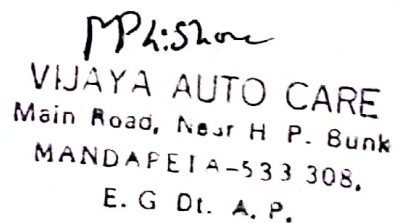 VIJAYA AUTO CARE
Main Road, Near H P. Bunk
MANDAPETA-533 308.
E. G Dt. A. P.